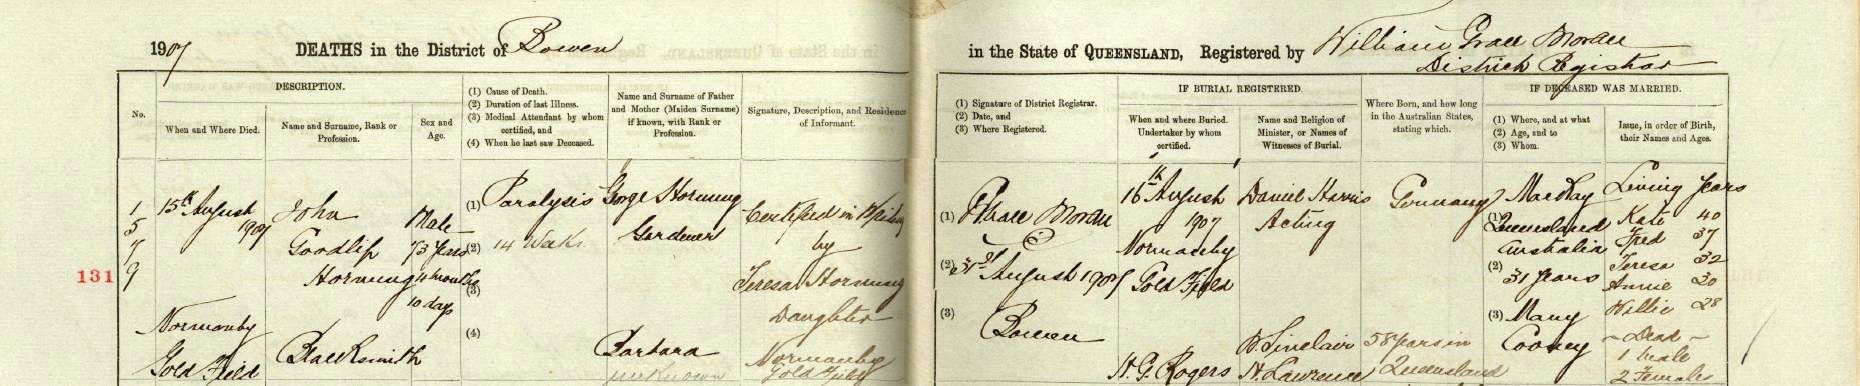 1907 DEATHS in the District of Bowen
in the State of QUEENSLAND, Registered by William Grace Moran
District Registrar
No.
DESCRIPTION.
When and Where Died.
Name and Surname, Rank or
Profession.
Sex and
Age.
(1) Cause of Death.
(2) Duration of last Illness.
(3) Medical Attendant by whom
certified, and
(4) When he last saw Deceased.
Name and Surname of Father
and Mother (Maiden Surname)
if known, with Rank or
Profession.
Signature, Description, and Residence
of Informant.
(1) Signature of District Registrar.
(2) Date, and
(3) Where Registered.
IF BURIAL REGISTERED.
When and where Buried.
Undertaker by whom
certified.
Name and Religion of
Minister, or Names of
Witnesses of Burial.
Where Born, and how long
in the Australian States,
stating which.
IF DECEASED WAS MARRIED.
(1) Where, and at what
(2) Age, and to
(3) Whom.
Issue, in order of Birth,
their Names and Ages.
131
1
5
7
9
15th August
1907
Normanby
Gold Field
John
Goodlip
Hornung
Blacksmith
Male
73 years
4 months
10 days
(1) Paralysis
(2) 14 Weeks
(3)
(4)
George Hornung
Gardener
Barbara
unknown
Certified in Writing
by
Teresa Hornung
Daughter
Normanby
Gold Field
(1) Moran
(2) 31st August 1907
(3) Bowen
16th August
1907
Normanby
Gold Field
H. G. Rogers
Daniel Harris
Acting
D. Sinclair
H. Lawrence
Germany
58 years in
Queensland
Mackay
(1) Queensland
Australia
(2)
31 years
(3) Mary
Cooney
Living Years
Kate 40
Fred 37
Teresa 32
Annie 30
Willie 28
- Dead -
1 Male
2 Females